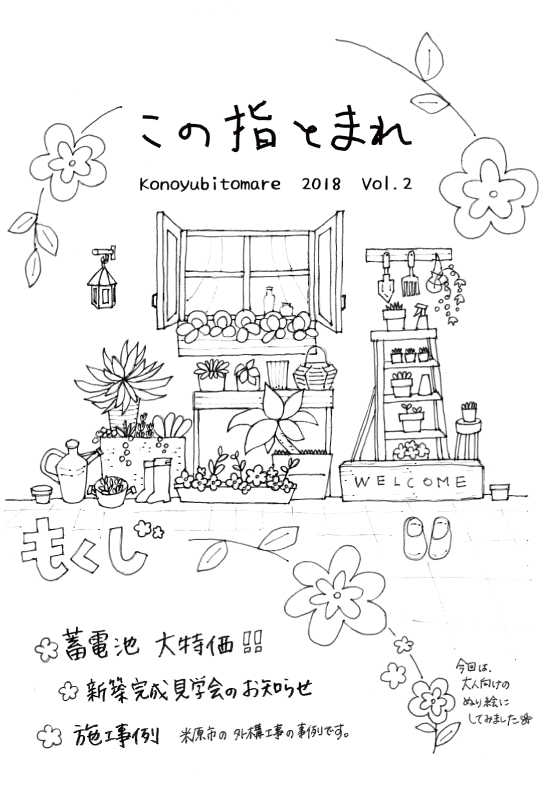 この指とまれ
Konoyubitomare 2018 Vol.2
WELCOME
もくじ
蓄電池 大特価!!
新築完成見学会のお知らせ
施工事例 米原市の外構工事の事例です。
今回は、
大人向けの
ぬり絵に
してみました